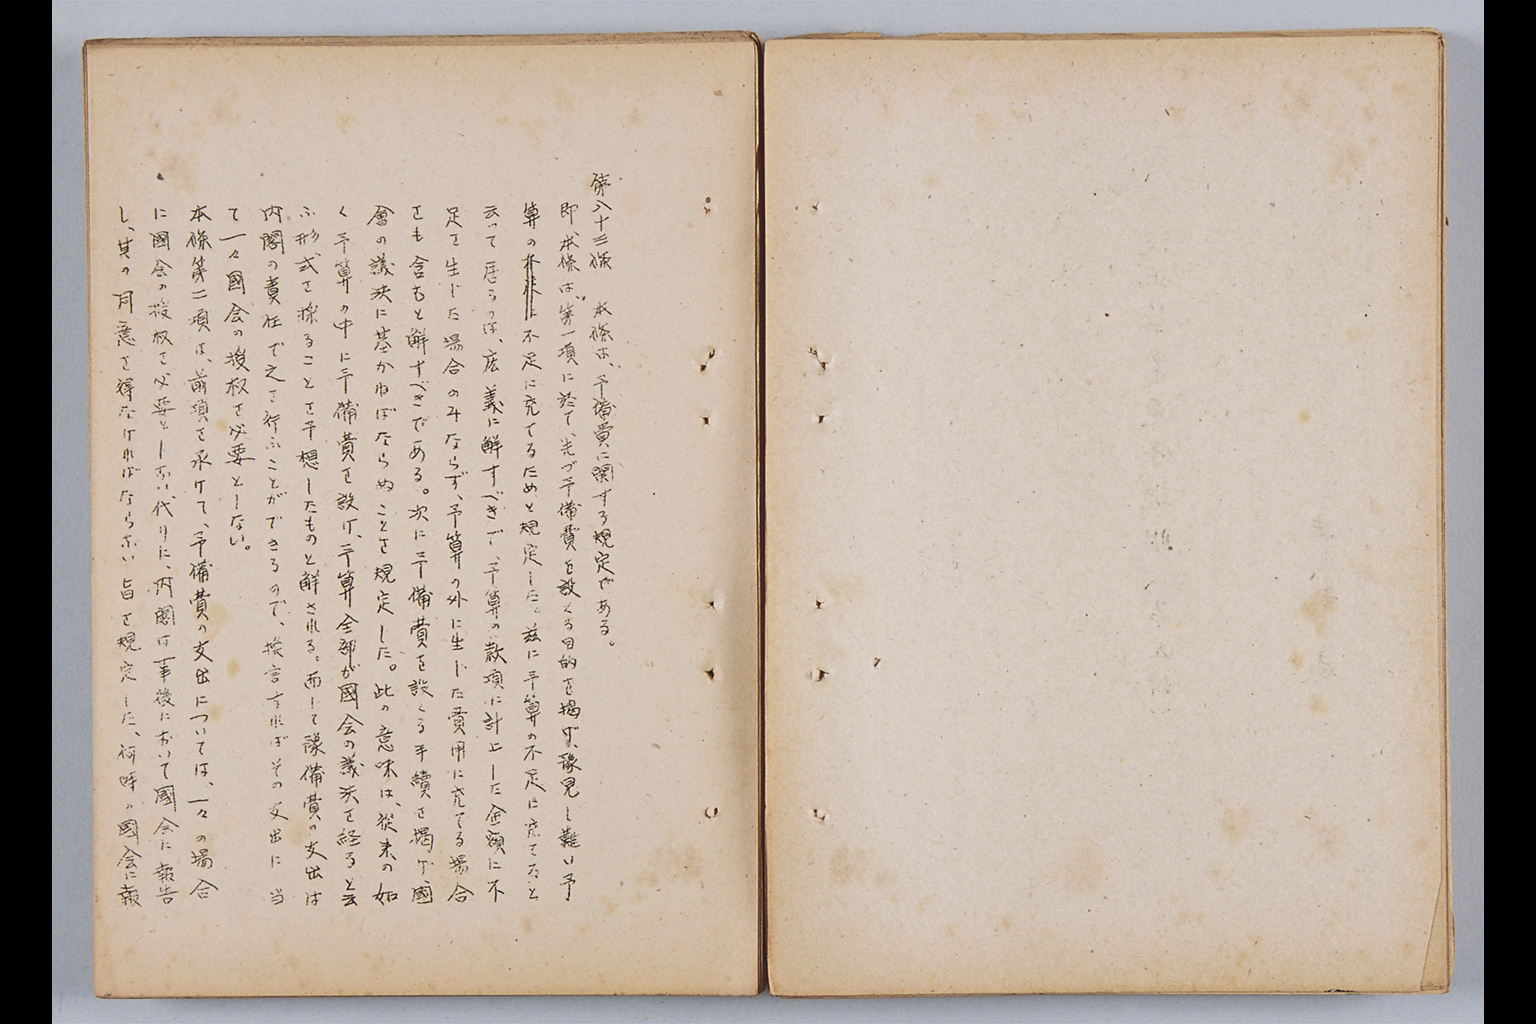 第八十三條　本條は、予備費に関する規定である。
即本條は、第一項に於て、先づ予備費を設くる目的を掲げ、豫見し難い予
算の不足に充てるためと規定した。茲に予算の不足に充てると
云って居るのは、広義に解すべきで、予算の款項に計上した金額に不
足を生じた場合のみならず、予算の外に生じた費用に充てる場合
をも含むと解すべきである。次に予備費を設くる手續を掲げ、國
會の議決に基かねばならぬことを規定した。此の意味は、従来の如
く予算の中に予備費を設け、予算全部が國会の議決を経ると云
ふ形式を採ることを予想したものと解される。而して豫備費の支出は
内閣の責任で之を行ふことができるので、換言すればその支出に当
て一々國会の授权を必要としない。
本條第二項は、前項を承けて、予備費の支出については、一々の場合
に國会の授权を必要としない代りに、内閣は事後において國会に報告
し、其の同意を得なければならない旨を規定した、何時の國会に報